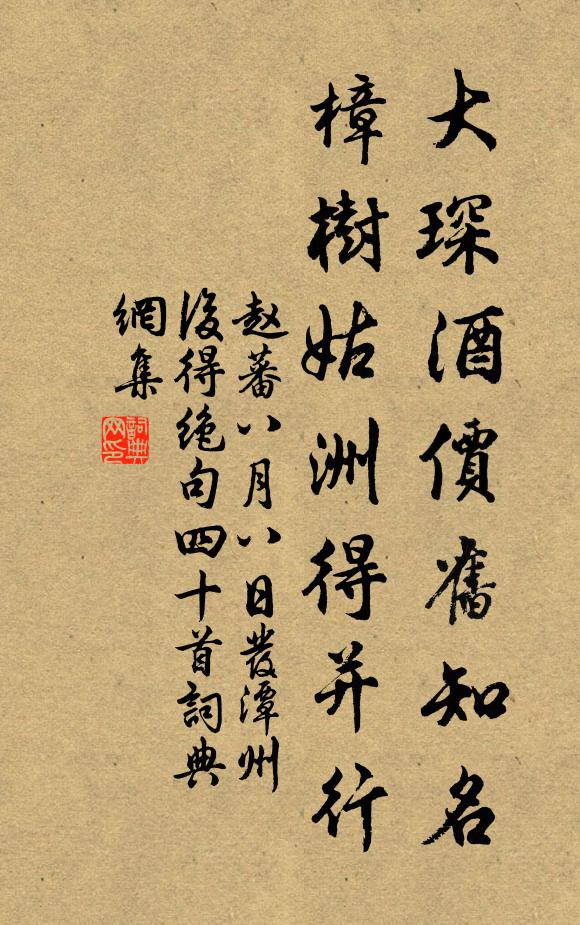 大琛酒價舊知名
樟樹姑洲得并行
赵蕃八月八日發潭州
後得絶句四十首詞典
網集
詞典
网印